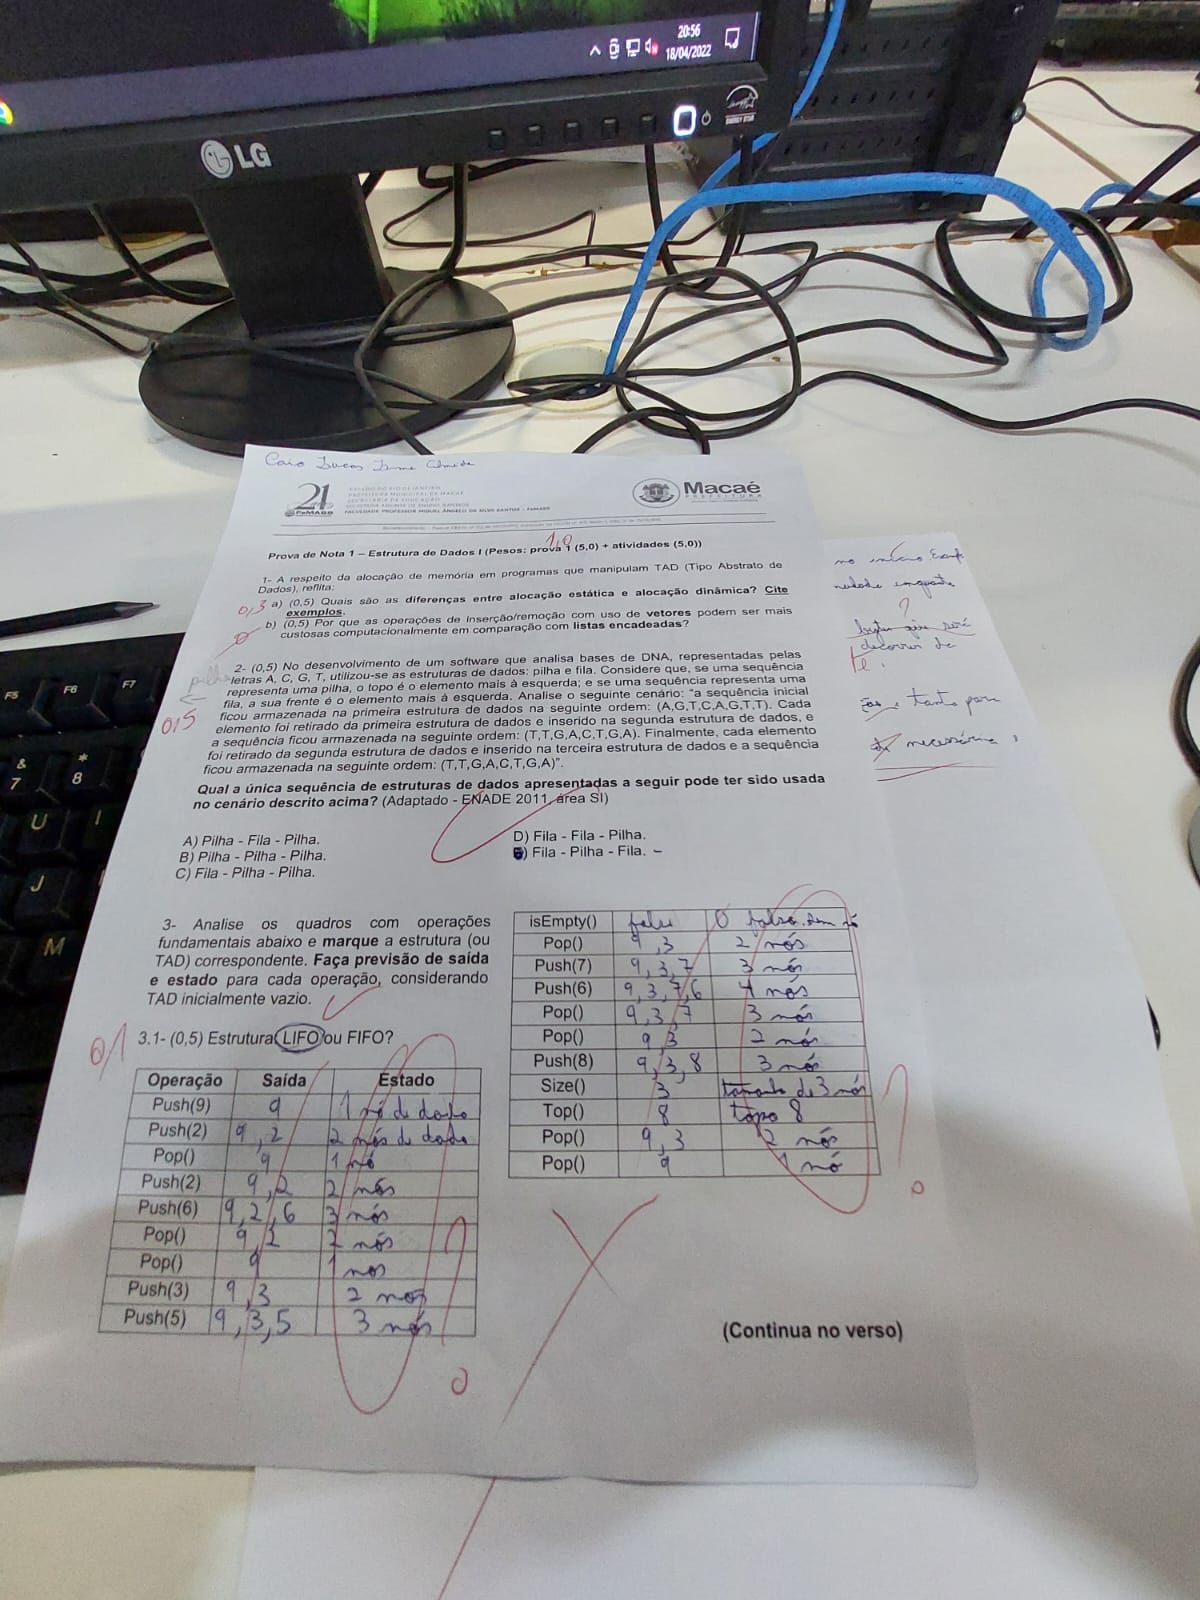 20:56
18/04/2022
LG
ENERGY STAR
F5
F6
F7
&
7
*
8
U
I
J
M
Caio Lucas
21
FeMASS
ESTADO DO RIO DE JANEIRO
PREFEITURA MUNICIPAL DE MACAÉ
SECRETARIA DE EDUCAÇÃO
SECRETARIA ADJUNTA DE ENSINO SUPERIOR
FACULDADE PROFESSOR MIGUEL ÂNGELO DA SILVA SANTOS - FeMASS
Macaé
PREFEITURA
1,0
Prova de Nota 1 – Estrutura de Dados I (Pesos: prova 1 (5,0) + atividades (5,0))
1- A respeito da alocação de memória em programas que manipulam TAD (Tipo Abstrato de
Dados), reflita:
0,3 a) (0,5) Quais são as diferenças entre alocação estática e alocação dinâmica? Cite
exemplos.
b) (0,5) Por que as operações de inserção/remoção com uso de vetores podem ser mais
custosas computacionalmente em comparação com listas encadeadas?
pilha
0,5
2- (0,5) No desenvolvimento de um software que analisa bases de DNA, representadas pelas
letras A, C, G, T, utilizou-se as estruturas de dados: pilha e fila. Considere que, se uma sequência
representa uma pilha, o topo é o elemento mais à esquerda; e se uma sequência representa uma
fila, a sua frente é o elemento mais à esquerda. Analise o seguinte cenário: “a sequência inicial
ficou armazenada na primeira estrutura de dados na seguinte ordem: (A,G,T,C,A,G,T,T). Cada
elemento foi retirado da primeira estrutura de dados e inserido na segunda estrutura de dados, e
a sequência ficou armazenada na seguinte ordem: (T,T,G,A,C,T,G,A). Finalmente, cada elemento
foi retirado da segunda estrutura de dados e inserido na terceira estrutura de dados e a sequência
ficou armazenada na seguinte ordem: (T,T,G,A,C,T,G,A)”.
Qual a única sequência de estruturas de dados apresentadas a seguir pode ter sido usada
no cenário descrito acima? (Adaptado - ENADE 2011, área SI)
A) Pilha - Fila - Pilha.
B) Pilha - Pilha - Pilha.
C) Fila - Pilha - Pilha.
D) Fila - Fila - Pilha.
E) Fila - Pilha - Fila. -
3- Analise os quadros com operações
fundamentais abaixo e marque a estrutura (ou
TAD) correspondente. Faça previsão de saída
e estado para cada operação, considerando
TAD inicialmente vazio.
0,1 3.1- (0,5) Estrutura LIFO ou FIFO?
Operação Saída Estado
Push(9) 9 1 nó de dado
Push(2) 9,2 2 nós de dado
Pop() 9 1 nó
Push(2) 9,2 2 nós
Push(6) 9,2,6 3 nós
Pop() 9,2 2 nós
Pop() 9 1 nos
Push(3) 9,3 2 nós
Push(5) 9,3,5 3 nós
isEmpty() false
Pop() 9,3 2 nós
Push(7) 9,3,7 3 nós
Push(6) 9,3,7,6 4 nós
Pop() 9,3,7 3 nós
Pop() 9,3 2 nós
Push(8) 9,3,8 3 nós
Size() 3 tamanho de 3 nós
Top() 8 topo 8
Pop() 9,3 2 nós
Pop() 9 1 nó
?
?
(Continua no verso)
no início
enquanto
?
que será
decorrer de
te.
tanto para
necessária